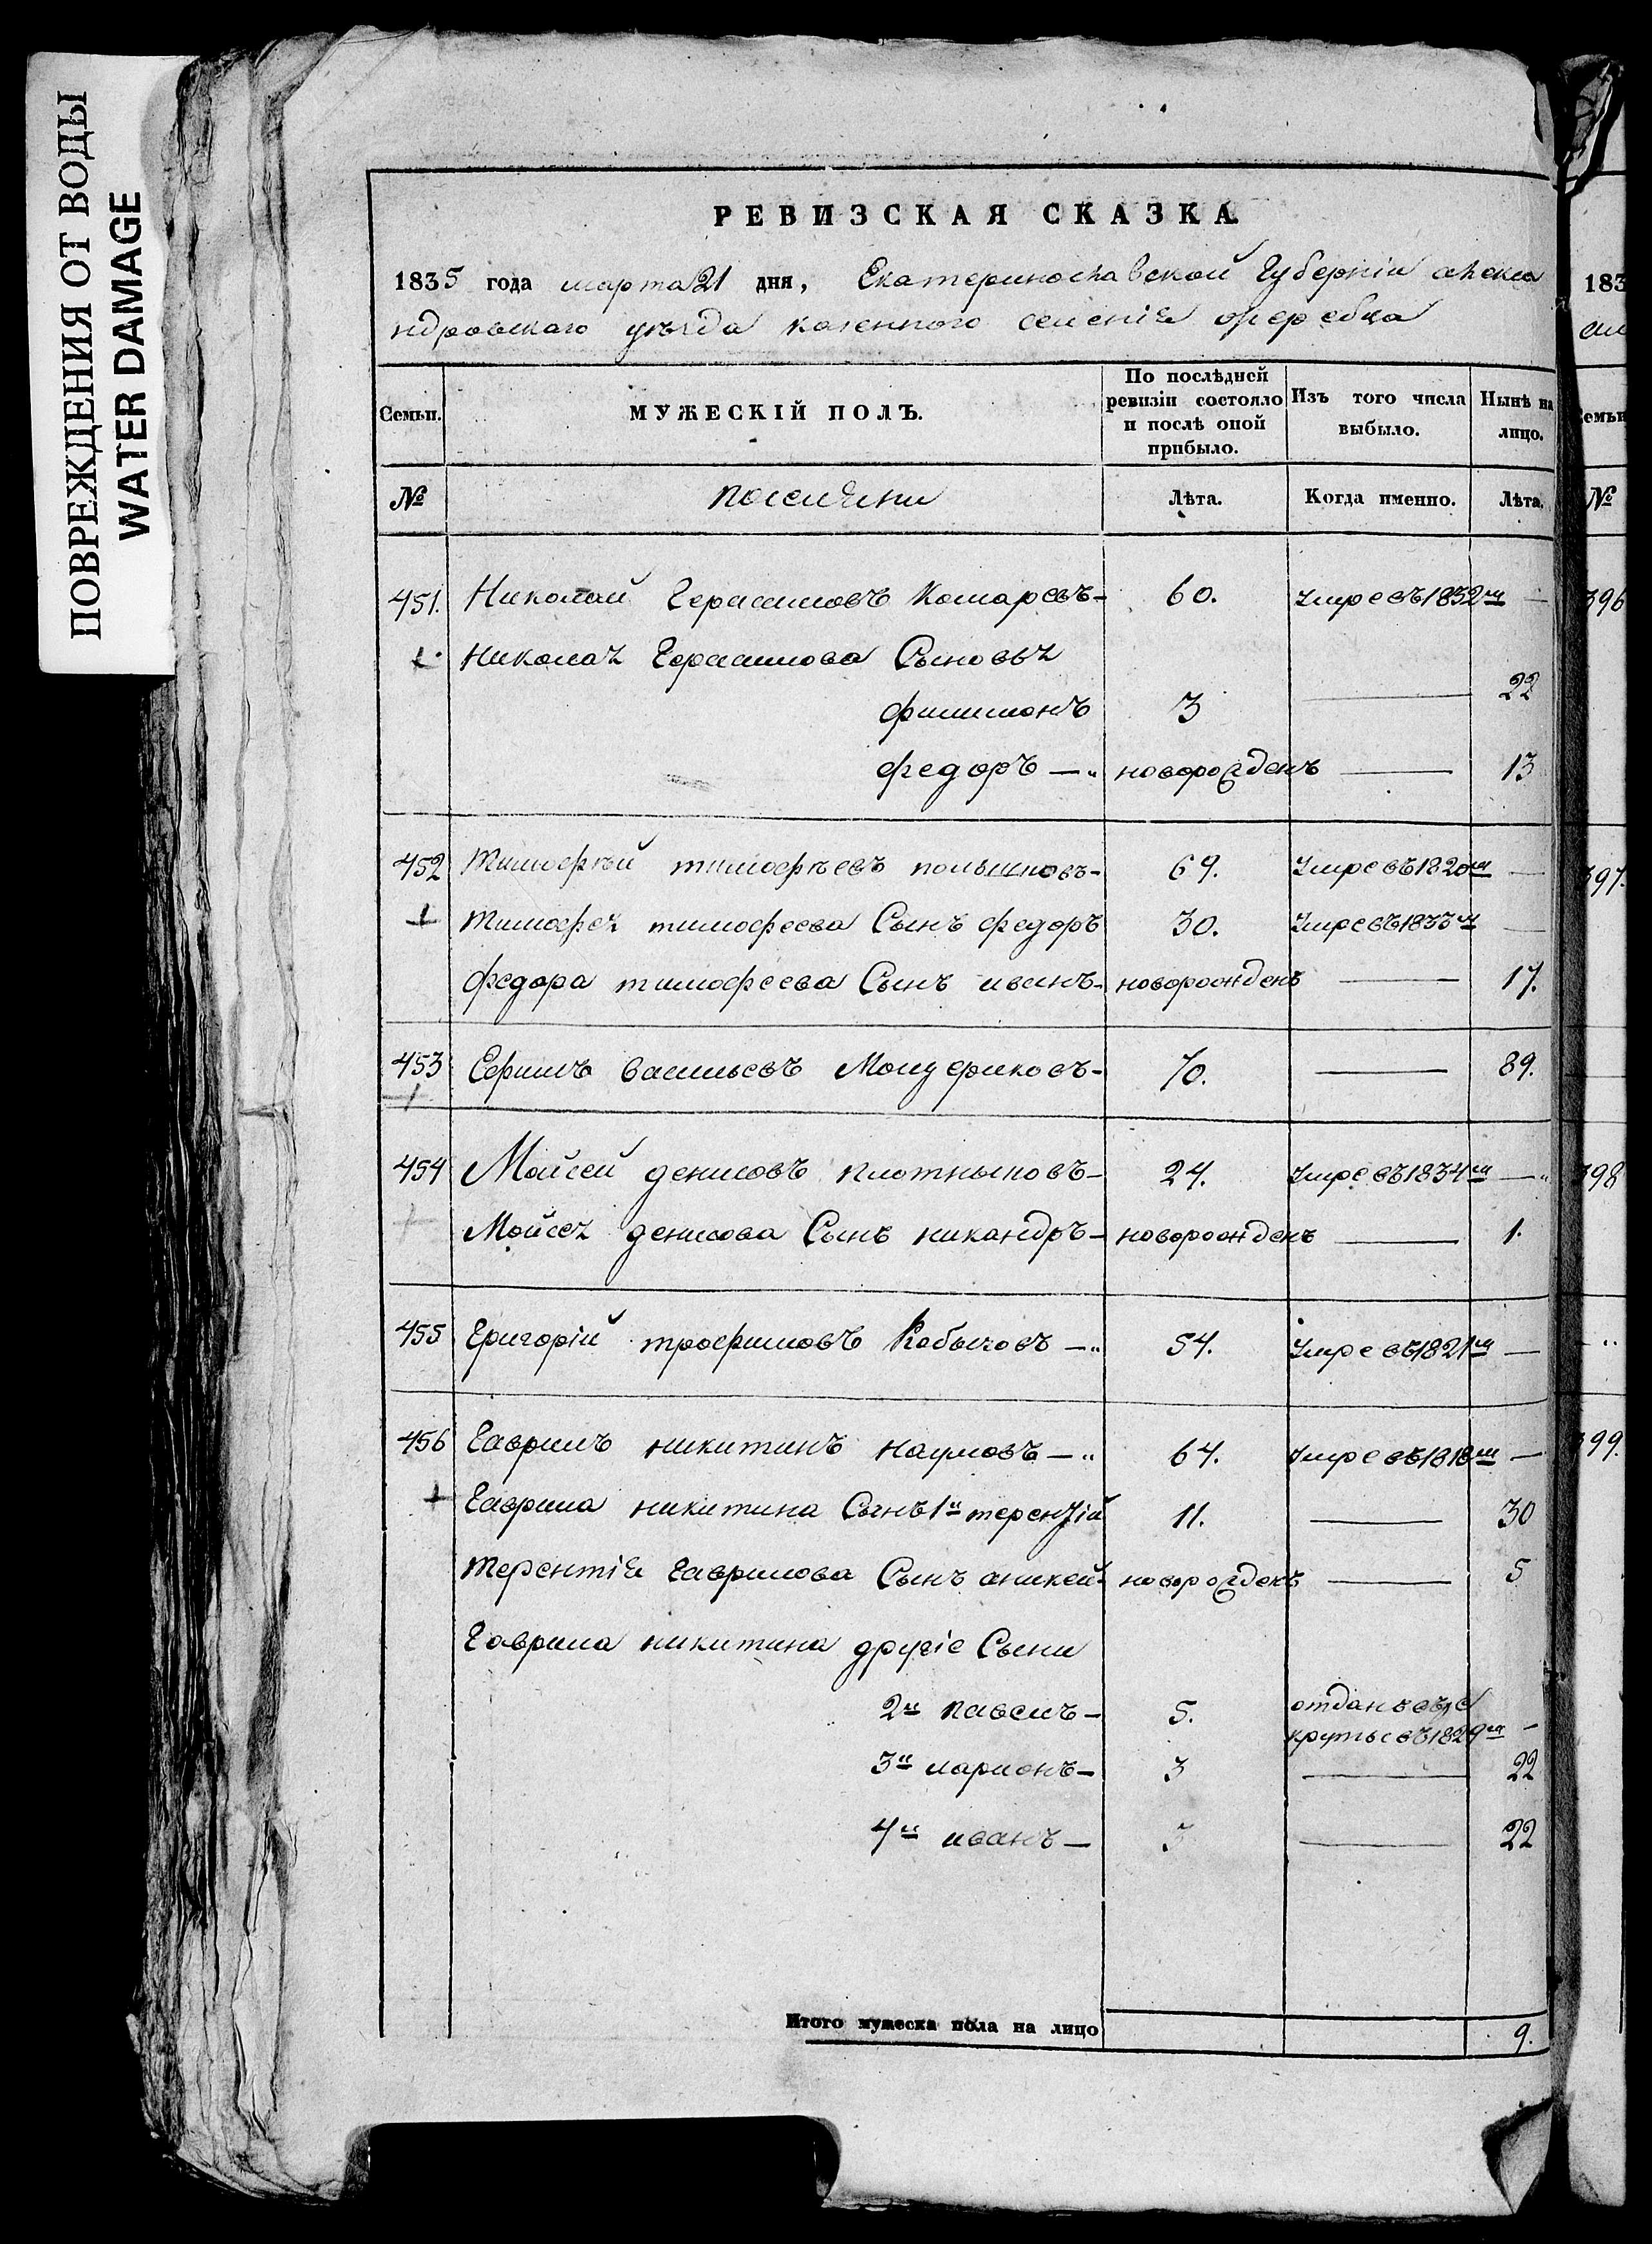 ПОВРЕЖДЕНИЯ ОТ ВОДЫ
WATER DAMAGE
РЕВИЗСКАЯ СКАЗКА
1835 года марта 21 дня, Екатеринославской Губерніи алекса
ндровскаго уѣзда казенного селенія ореребца
Семьи. МУЖЕСКІЙ ПОЛЪ. По послѣдней ревизіи состояло и послѣ оной прибыло. Изъ того числа выбыло. Нынѣ на лицо.
№ поселяни Лѣта. Когда именно. Лѣта.
451. Николай Герасимовъ Комаревъ- 60. Умре въ 1832м —
Николая Герасимова Сыновья
филимонъ 3 — 22
федоръ —„ новорожденъ — 13
452 Тимофѣй тимофѣевъ 69. Умре въ 1820м —
+ Тимофея тимофеева Сынъ федоръ 30. Умре въ 1833м —
федора тимофеева Сынъ иванъ- новорожденъ — 17.
453 Ефимъ васильевъ 70. — 89.
+
454 Мойсей денисовъ плотныковъ- 24. Умре въ 1834м —„
+ Мойсея денисова Сынъ никандръ- новорожденъ — 1.
455 Григорій трофимовъ Кобызовъ —„ 54. Умре въ 1821м —
456 Гаврилъ никитинъ наумовъ —„ 64. Умре въ 1818м —
+ Гаврила никитина Сынъ 1й терентій 11. — 30
Терентія гаврилова Сынъ аникей- новорожденъ — 5
Гаврила никитина другіе Сыни
2й павелъ- 5. отданъ въ ре
круты въ 1829м -
3й ларионъ- 3 — 22
4й иванъ — 3 — 22
Итого мужеска пола на лицо 9.
183
№
396
397.
398
399.